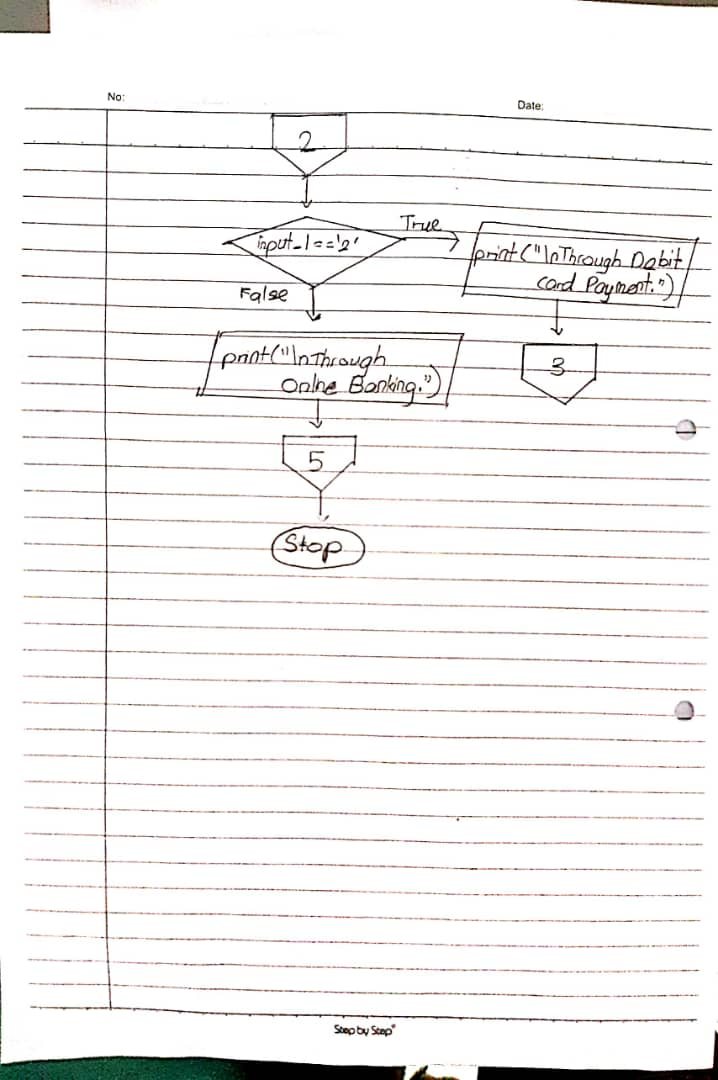 No:
Date:
2
input_1=='2'
True
print("\nThrough Debit
card Payment.")
3
False
print("\nThrough
Onlne Banking.")
5
Stop
Step by Step®